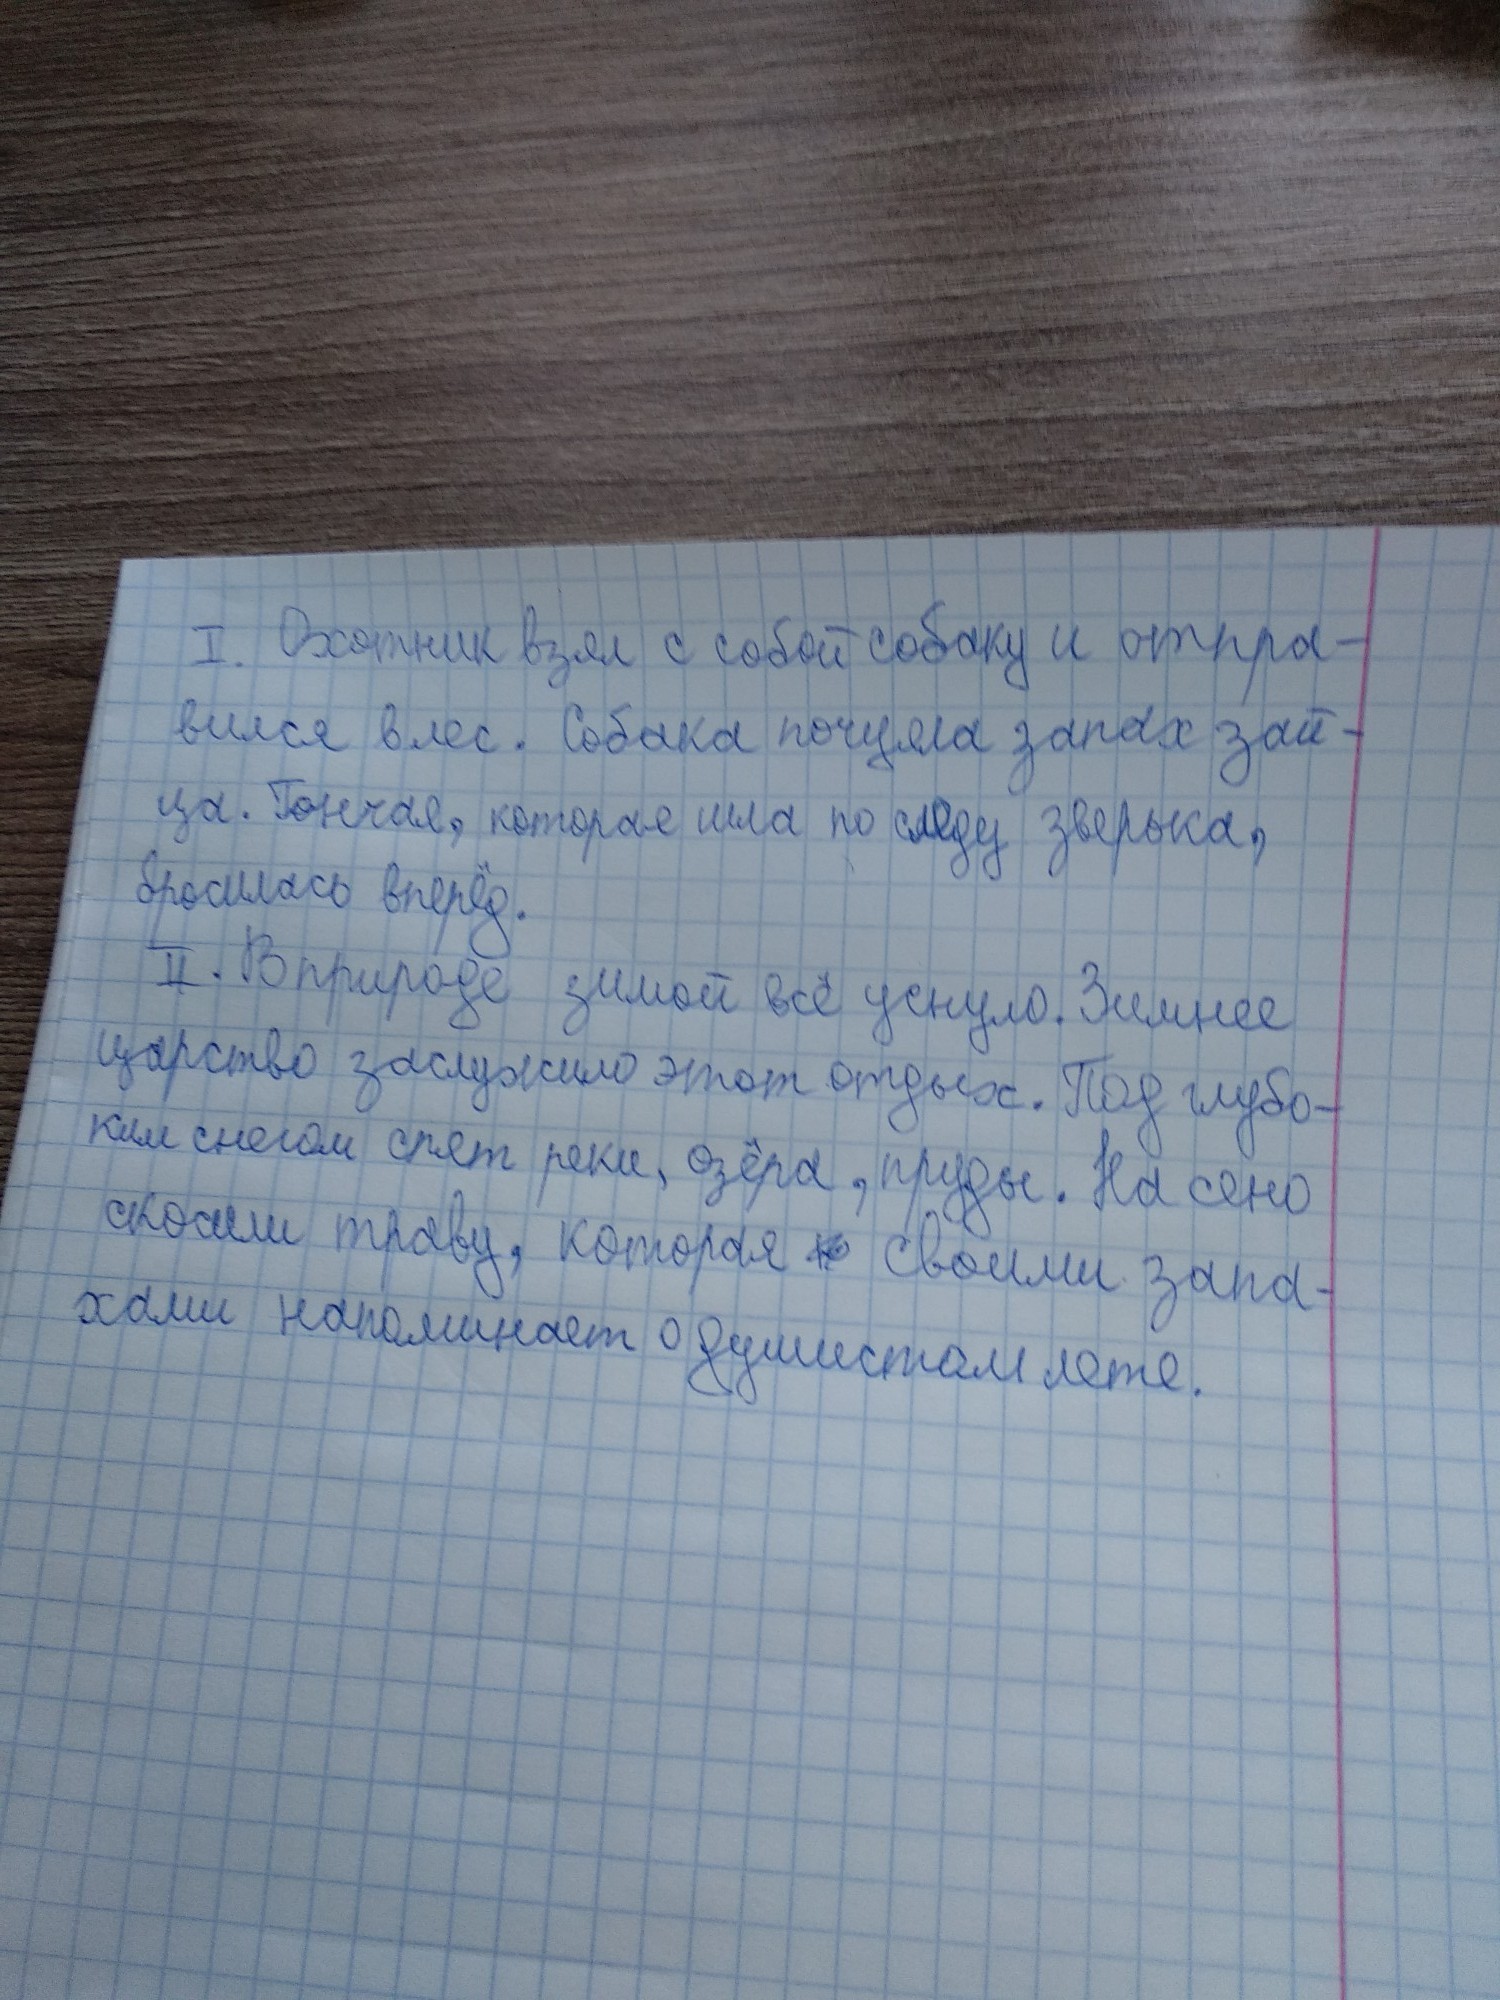 I. Охотник взял с собой собаку и отпра-
вился в лес. Собака почуяла запах зай-
ца. Гончая, которая шла по следу зверька,
бросилась вперёд.
II. В природе зимой всё уснуло. Зимнее
царство заслужило этот отдых. Под глубо-
ким снегом спят реки, озёра, пруды. На сено
скосили траву, которая своими запа-
хами напоминает о душистом лете.